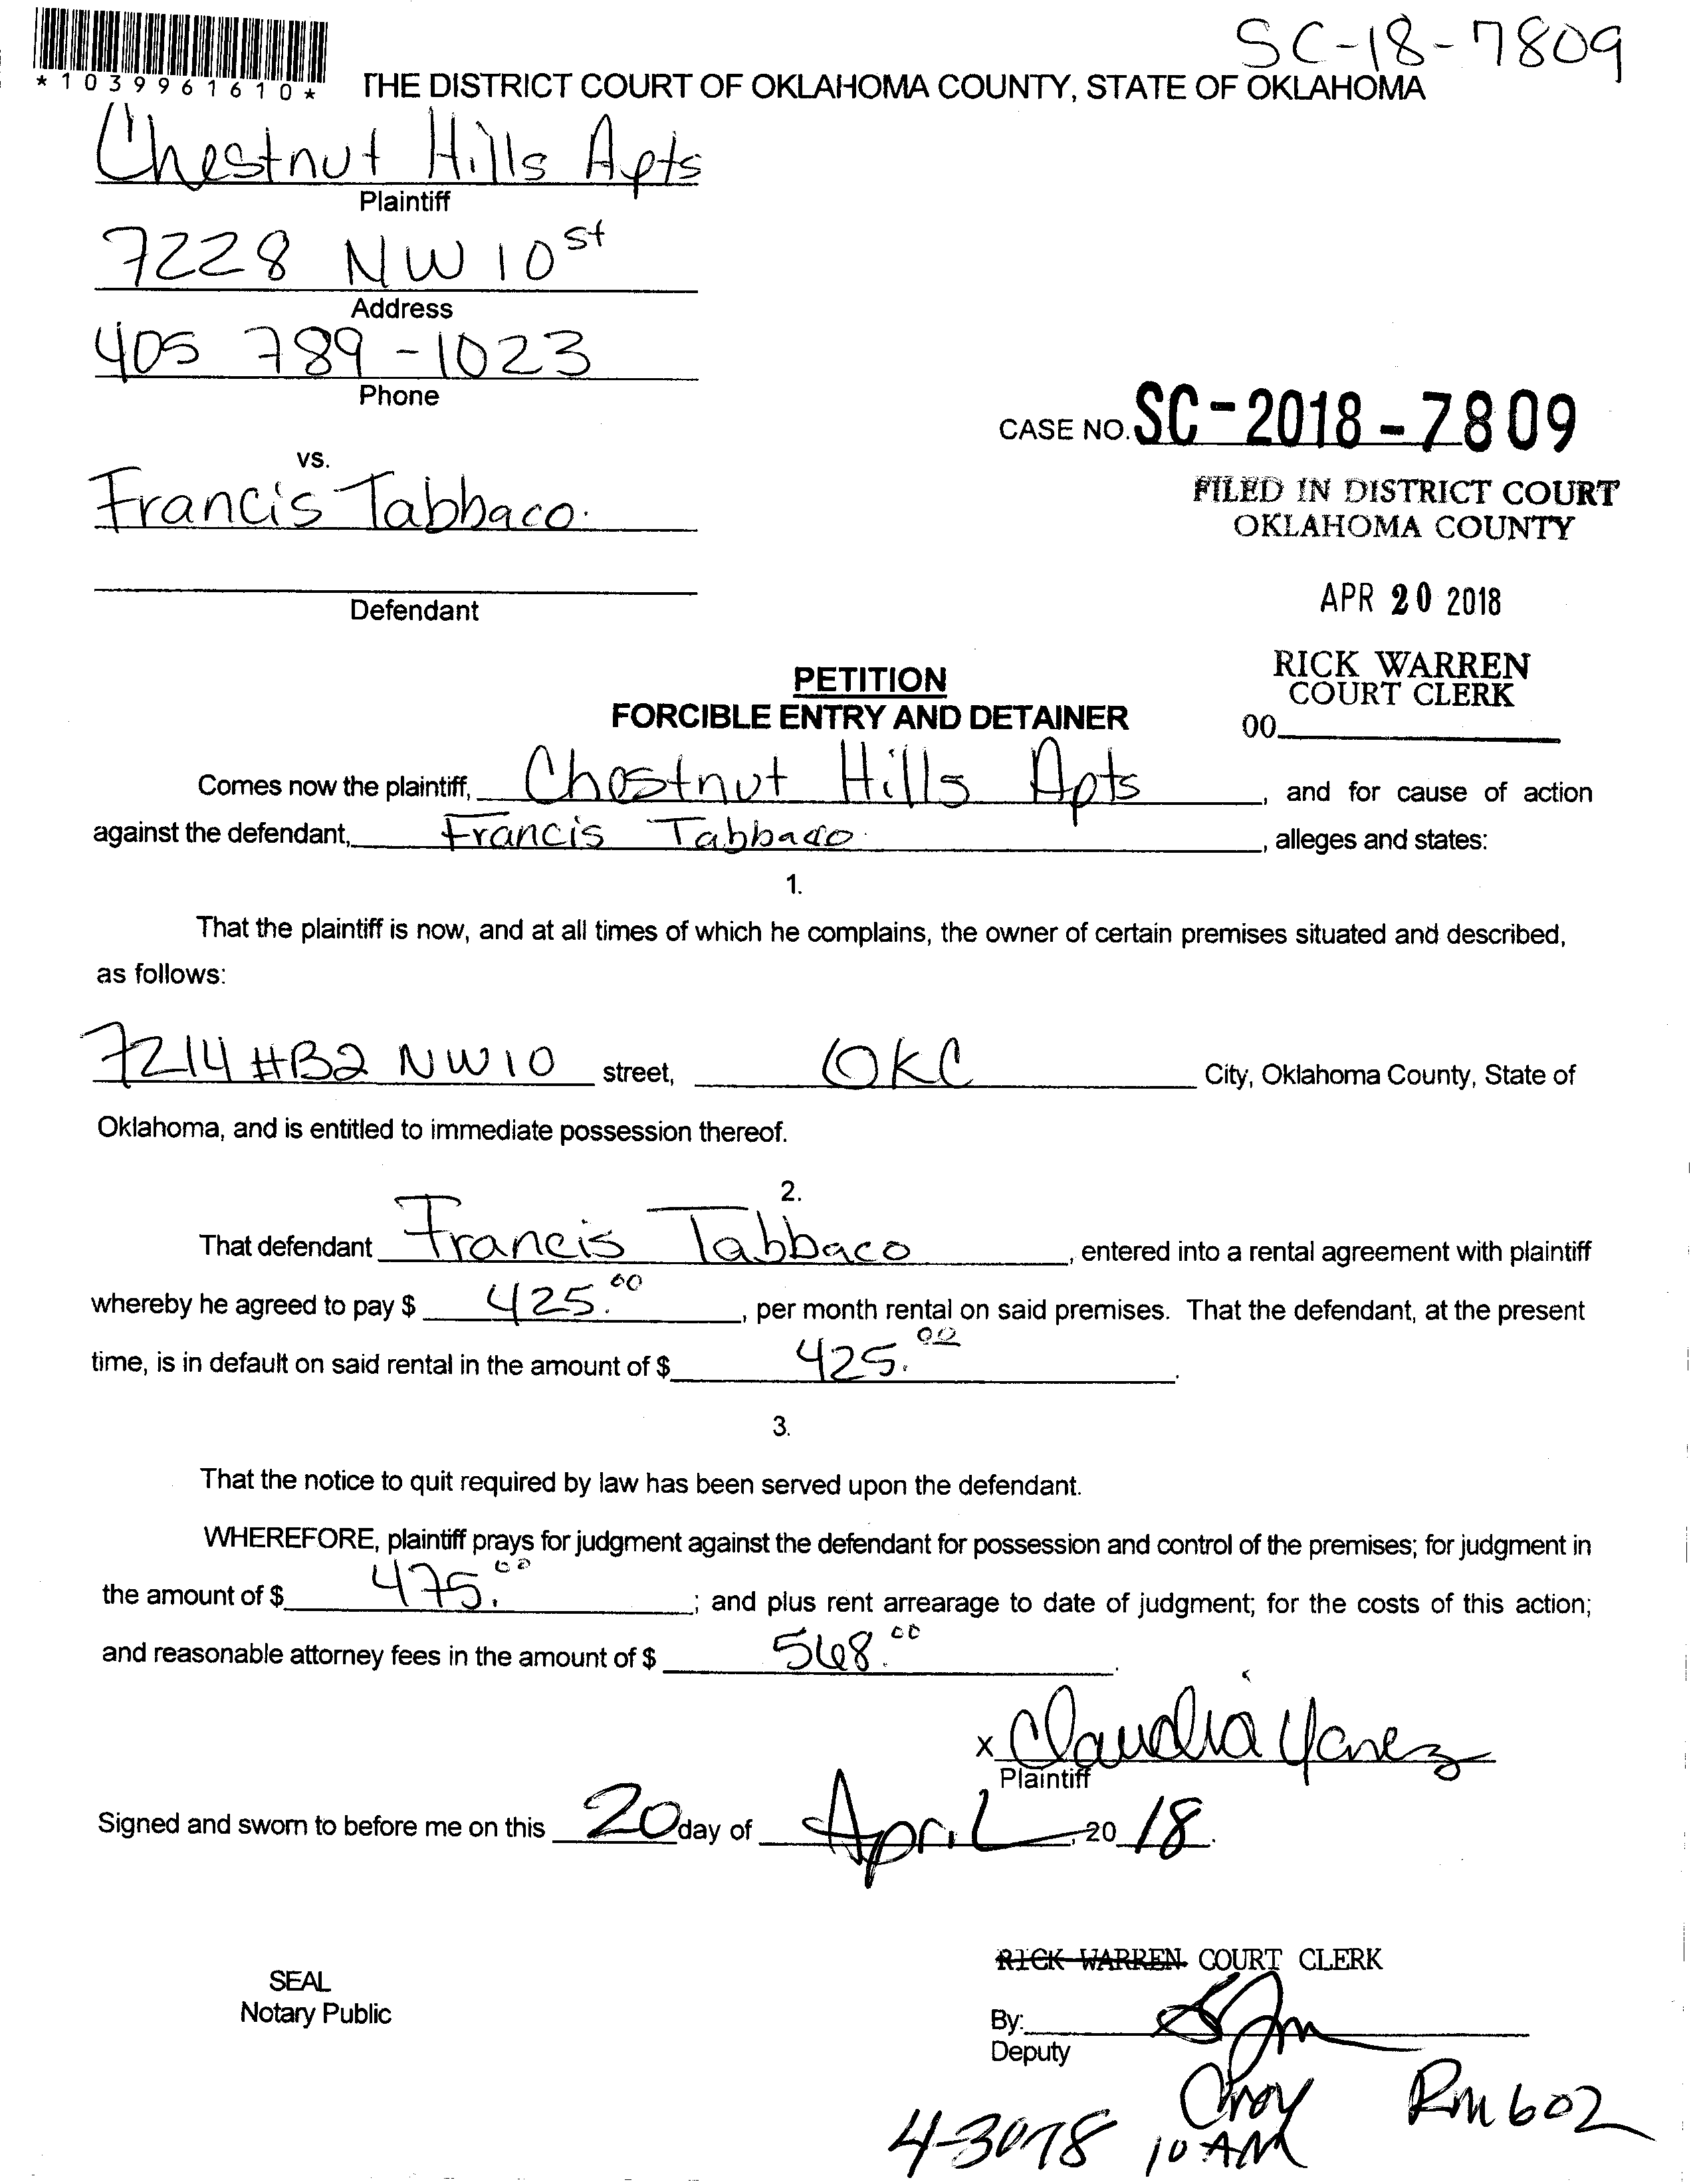 SC-18-7809
*1039961610*
THE DISTRICT COURT OF OKLAHOMA COUNTY, STATE OF OKLAHOMA
Chestnut Hills Apts
Plaintiff
7228 NW 10st
Address
405 789-1023
Phone
CASE NO. SC-2018-7809
vs.
FILED IN DISTRICT COURT
OKLAHOMA COUNTY
Francis Tabbaco.
APR 20 2018
Defendant
RICK WARREN
COURT CLERK
00
PETITION
FORCIBLE ENTRY AND DETAINER
Comes now the plaintiff, Chestnut Hills Apts, and for cause of action
against the defendant, Francis Tabbaco, alleges and states:
1.
That the plaintiff is now, and at all times of which he complains, the owner of certain premises situated and described,
as follows:
7214 #B2 NW 10 street, OKC City, Oklahoma County, State of
Oklahoma, and is entitled to immediate possession thereof.
2.
That defendant Francis Tabbaco, entered into a rental agreement with plaintiff
whereby he agreed to pay $ 425.00, per month rental on said premises. That the defendant, at the present
time, is in default on said rental in the amount of $ 425.00.
3.
That the notice to quit required by law has been served upon the defendant.
WHEREFORE, plaintiff prays for judgment against the defendant for possession and control of the premises; for judgment in
the amount of $ 475.00; and plus rent arrearage to date of judgment; for the costs of this action;
and reasonable attorney fees in the amount of $ 568.00.
x Claudia Yanez
Plaintiff
Signed and sworn to before me on this 20 day of April, 20 18.
RICK WARREN COURT CLERK
SEAL
Notary Public
By:
Deputy
4-30-18 10 AM Rm 602